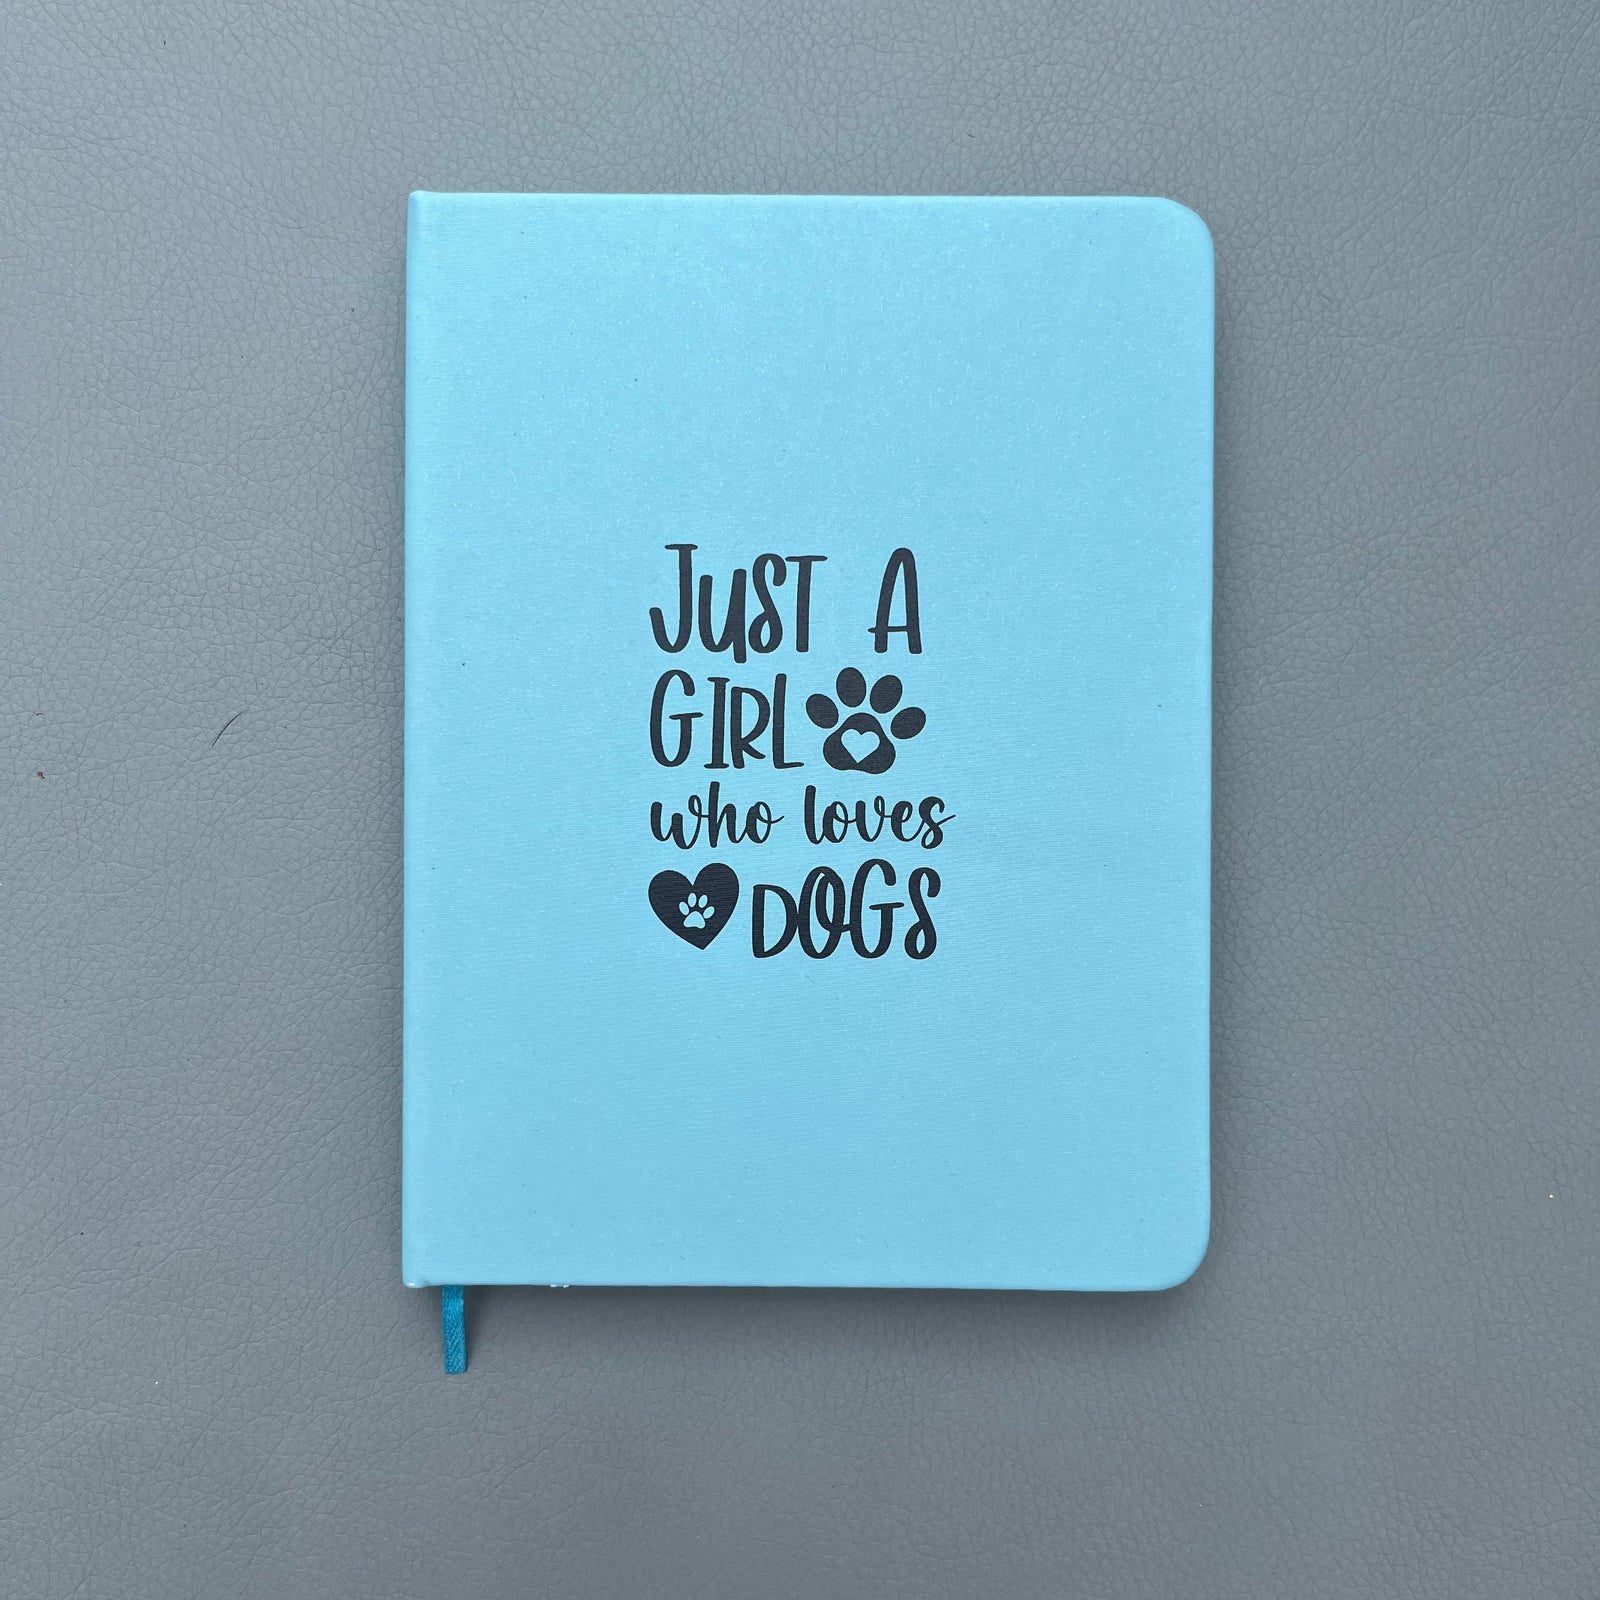 JUST A
GIRL
who loves
DOGS